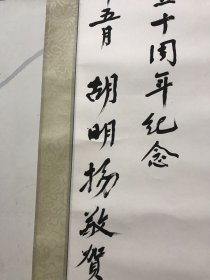 五十周年纪念
年五月 胡明扬敬贺